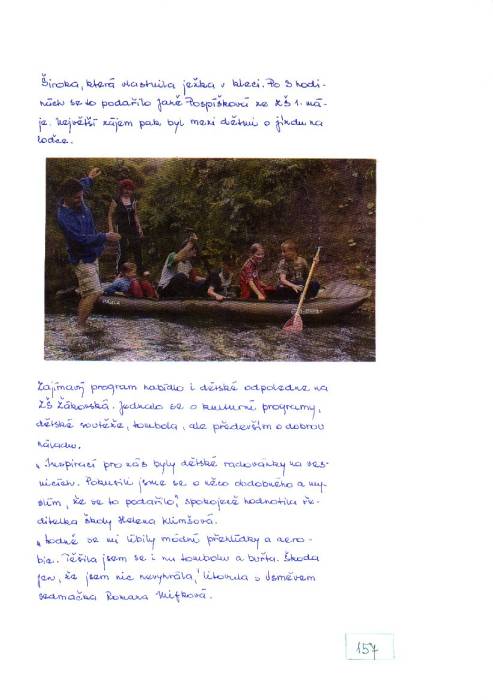 Široka, která vlastnila ježka v kleci. Po 3 hodi-
nách se to podařilo Janě Pospíškové ze ZŠ 1. má-
je. Největší zájem pak byl mezi dětmi o jízdu na
loďce.
Zajímavý program nabídlo i dětské odpoledne na
ZŠ Žákovská. Jednalo se o kulturní programy,
dětské soutěže, tombola, ale především o dobrou
náladu.
„Inspirací pro nás byly dětské radovánky na ves-
nicích. Pokusili jsme se o něco obdobného a my-
slím, že se to podařilo," spokojeně hodnotila ře-
ditelka školy Helena Klimšová.
„Hodně se mi líbily módní přehlídky a aero-
bic. Těšila jsem se i na tombolu a buřta. Škoda
jen, že jsem nic nevyhrála," litovala s úsměvem
sedmačka Romana Mifková.
157